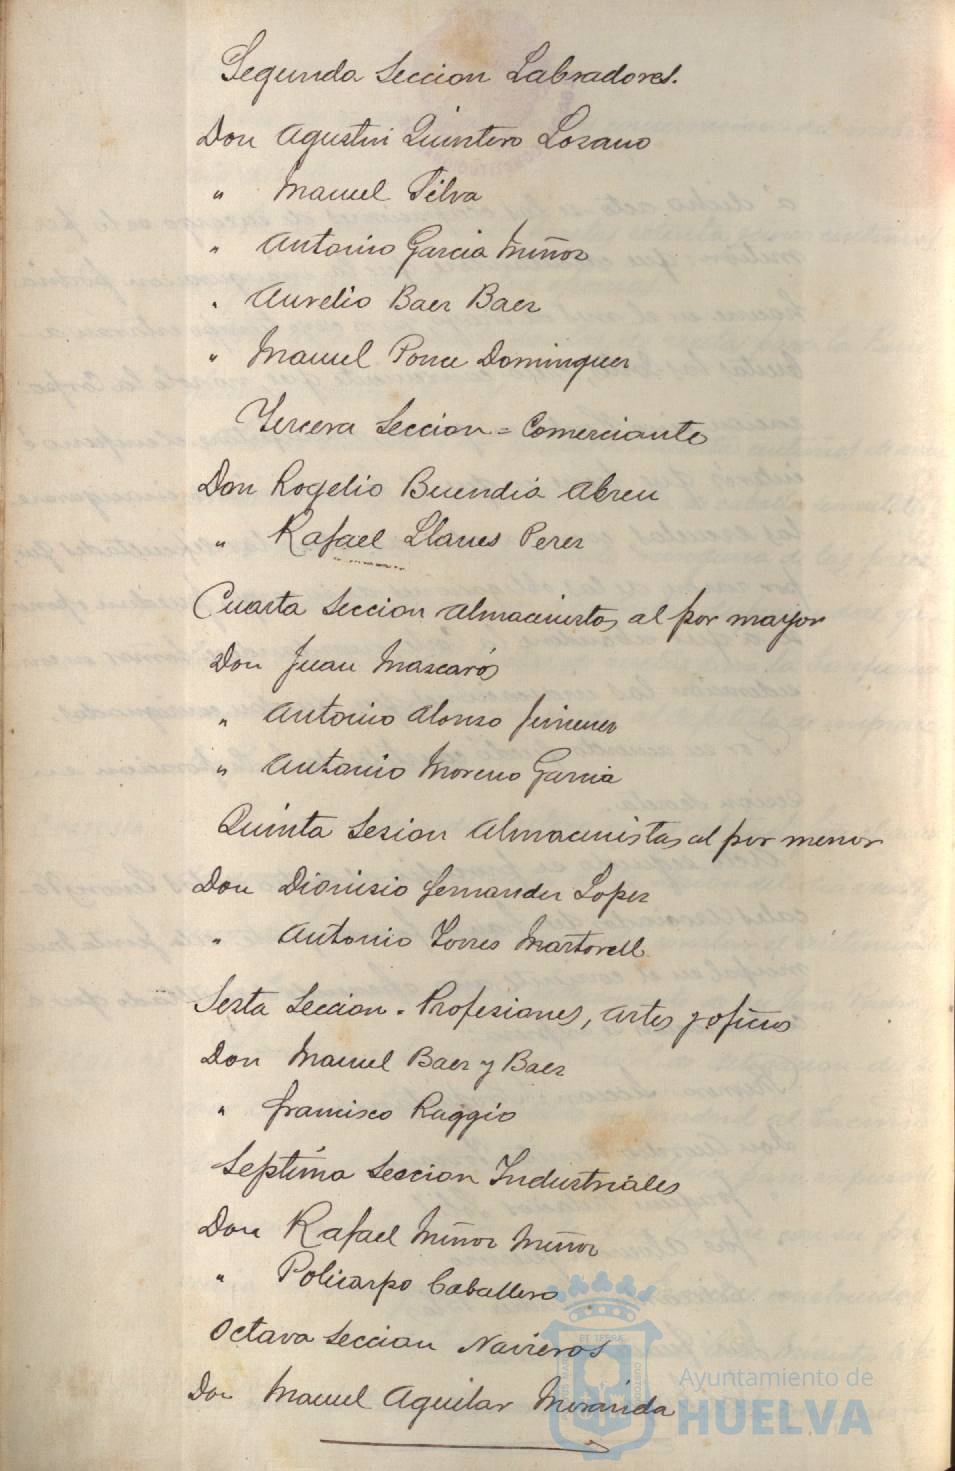 Segunda Seccion Labradores.
Don Agustin Quintero Lozano
" Manuel Silva
" Antonio Garcia Miñoz
" Aurelio Baez Baez
" Manuel Ponce Dominguez
Tercera Seccion = Comerciantes
Don Rogelio Buendia Abreu
" Rafael Llanes Perez
Cuarta Seccion Almacenistas al por mayor
Don Juan Mascarós
" Antonio Alonso Jimenez
" Antonio Moreno Garcia
Quinta Sesion Almacenistas al por menor
Don Dionisio Fernandez Lopez
" Antonio Torres Martorell
Sexta Seccion. Profesiones, artes y oficios
Don Manuel Baez y Baez
" Francisco Raggio
Septima Seccion Industriales
Don Rafael Miñoz Miñoz
" Policarpo Caballero
Octava Seccion Navieros
Don Manuel Aguilar Moranda
Ayuntamiento de
HUELVA